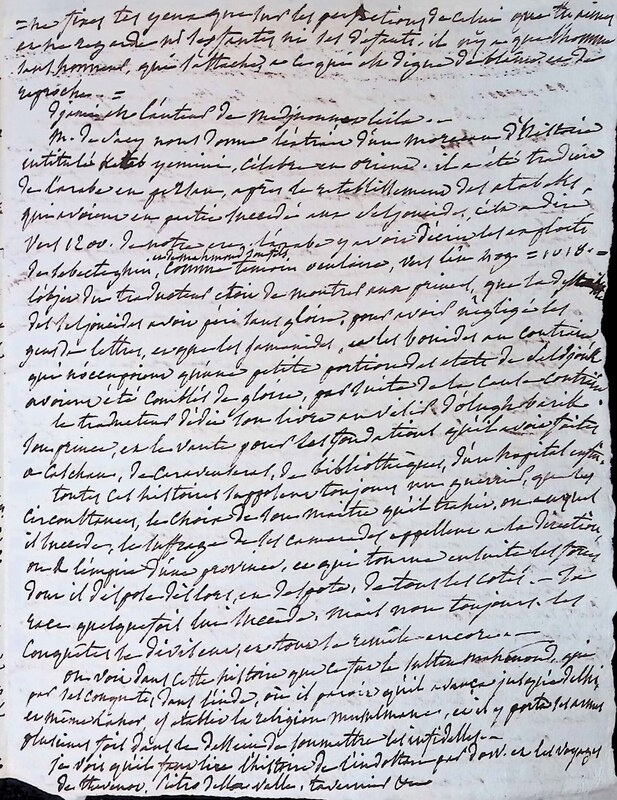 = ne fixes tes yeux que sur les perfections de celui que tu aimes
et ne regarde ni ses fautes ni ses defauts. il n'y a que l'homme
sans honneur, qui s'attache, a ce qui est digne de blâme, et de
reproche. =
djami est l'auteur de medjnoun et leila. —
M. de Sacy nous donne l'extrait d'un morceau d'histoire
intitulé yemini, célebre en orient. il a été traduit
de l'arabe en persan, après le etablissement des atabeks,
qui avoient en partie succédé aux seljoucides, c'est a dire
vers 1200. de notre ere, l'arabe y avoit décrit les exploits
de sebecteghin, et de mahmoud son fils, comme temoin oculaire, vers l'an 409 = 1018. =
l'objet du traducteur etoit de montrer aux princes, que la
des seljoucides avoit péri sans gloire, pour avoir négligé les
gens de lettres, et que les samanides, et les bouides au contraire
qui n'occupoient qu'une petite portion des etats de seldjouk
avoient été comblés de gloire, par suite de la cause contraire.
le traducteur dédie son livre au visir d'olugh barik
son prince, et le vante pour les fondations qu'il avoit faites
a caschan, de caravenserais, de bibliothèques, d'un hopital enfin.
toutes ces histoires supposent toujours un guerrier, que les
circonstances, le choix de son maitre qu'il trahit, ou auquel
il succede, le suffrage de ses camarades appellent a la direction
ou de l'empire d'une province, et qui tourne ensuite les forces
dont il dispose dès lors, en despote, de tous les cotés. — sa
race quelquefois lui succède, mais non toujours. les
conquêtes le divisent, et tout la remêle encore. —
on voit dans cette histoire que ce fut le sultan mahmoud, qui
par ses conquetes, dans l'inde, où il paroit qu'il avança jusqu'a delhi
et même lahor y établit la religion musulmane, et il y porta ses armes
plusieurs fois dans le dessein de soumettre les infidelles. —
Je vois qu'il faut lire l'histoire de l'indostan par dow. et les voyages
de thevenot, Pietro della valle, tavernier &c